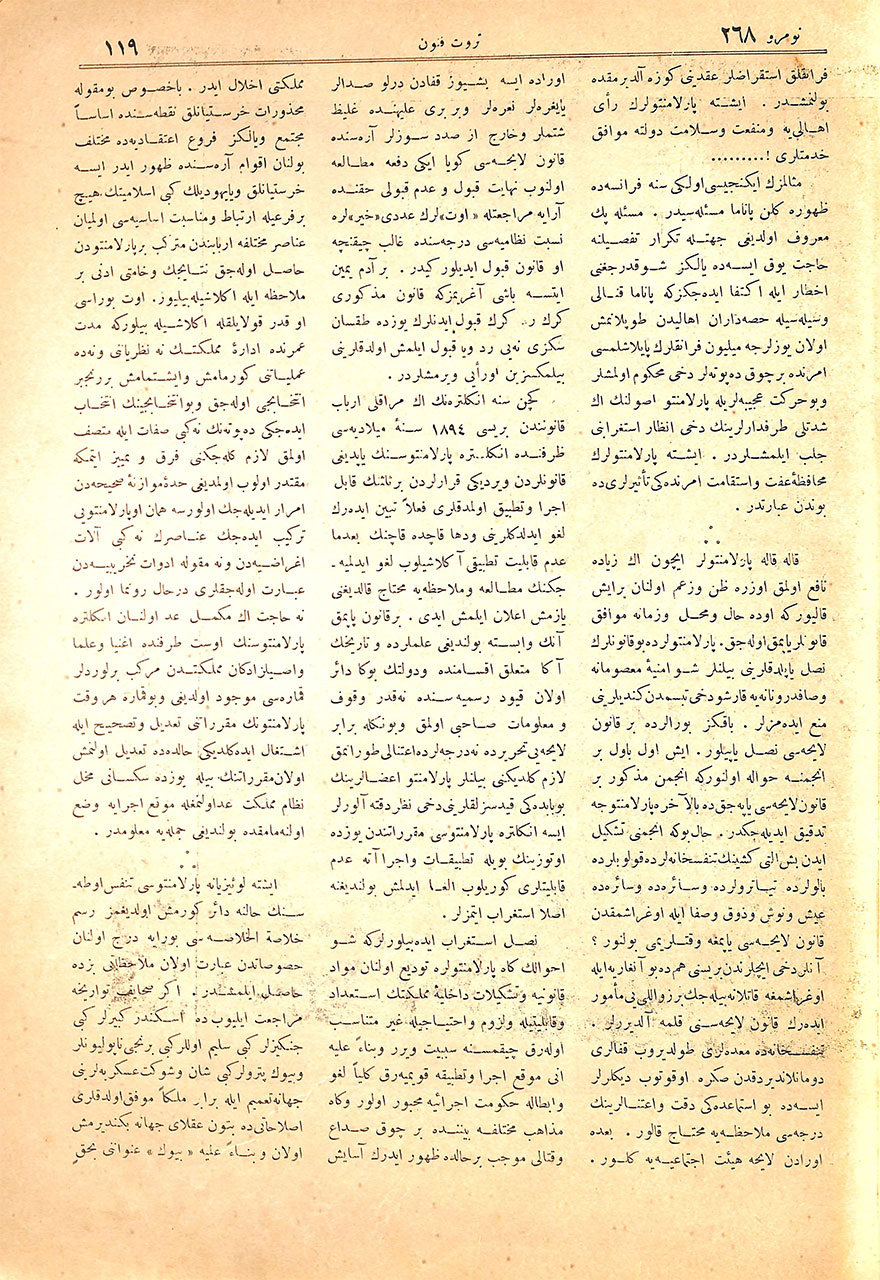 نومرو ٢٦٨
ثروت فنون
١١٩
فرانقلق استقراضلر عقدینی کوزه آلدیرمقده
بولنمشدر . ایشته پارلامنتولرك رأی
اهالی‌یه ومنفعت وسلامت دولته موافق
خدمتلری !.........
مثالمزك ایکنجیسی اولکی سنه فرانسه‌ده
ظهوره کلن پاناما مسئله‌سیدر . مسئله پك
معروف اولدیغی جهتله تکرار تفصیلنه
حاجت یوق ایسه‌ده یالکز شو قدرجغنی
اخطار ایله اکتفا ایده‌جکزکه پاناما قنالی
وسیله‌سیله حصه‌داران اهالیدن طوپلانمش
اولان یوزلرجه میلیون فرانقلرك پایلاشلمسی
امرنده برچوق ده‌پوته‌لر دخی محکوم اولمشلر
وبوحرکت عجیبه‌لریله پارلامنتو اصولنك اك
شدتلی طرفدارلرینك دخی انظار استغرابنی
جلب ایلمشلردر . ایشته پارلامنتولرك
محافظهٔ عفت واستقامت امرنده‌کی تأثیرلری‌ده
بوندن عبارتدر .
قاله قاله پارلامنتولر ایچون اك زیاده
نافع اولمق اوزره ظن وزعم اولنان برایش
قالیورکه اوده حال ومحل وزمانه موافق
قانونلر یاپمق اوله‌جق. پارلامنتولرده بوقانونلرك
نصل یاپلدقلرینی بیلنلر شو امنیهٔ معصومانه
وصافدرونانه‌یه قارشو دخی تبسمدن کندیلرینی
منع ایده‌مزلر . باقکز بورالرده بر قانون
لایحه‌سی نصل یاپیلور . ایش اول باول بر
انجمنه حواله اولنورکه انجمن مذکور بر
قانون لایحه‌سی یاپه‌جق‌ده بالآخره پارلامنتوجه
تدقیق ایدیله‌جکدر . حال بوکه انجمنی تشکیل
ایدن بش التی کشینك تنفسخانه‌لرده قولوبلرده
بالولرده تیاترولرده وسائره‌ده وسائره‌ده
عیش ونوش وذوق وصفا ایله اوغراشمقدن
قانون لایحه‌سی یاپمغه وقتلریمی بولنور ؟
آنلر دخی ایچلرندن بریسنی هم‌ده بو آنغاریه ایله
اوغراشمغه قاتلانه بیله‌جك برزواللی‌یی مأمور
ایده‌رك قانون لایحه‌سنی قلمه آلدیررلر .
تنفسخانه‌ده معده‌لری طولدیروب قفالری
دومانلاندیردقدن صکره اوقوتوب دیکلرلر
ایسه‌ده بو استماعده‌کی دقت واعتنالرینك
درجه‌سی ملاحظه‌یه محتاج قالور . بعده
اورادن لایحه هیئت اجتماعیه‌یه کلور .
اوراده ایسه بشیوز قفادن درلو صدالر
یایغره‌لر نعره‌لر وبربری علیهنده غلیظ
شتملر وخارج از صدد سوزلر آره‌سنده
قانون لایحه‌سی کویا ایکی دفعه مطالعه
اولنوب نهایت قبول و عدم قبولی حقنده
آرایه مراجعتله « اوت »لرك عددی « خیر »لره
نسبت نظامیه‌سی درجه‌سنده غالب چیقنجه
او قانون قبول ایدیلور کیدر . برآدم یمین
ایتسه باشی آغریمزکه قانون مذکوری
کرك رد کرك قبول ایدنلرك یوزده طقسان
سکزی نه‌یی رد ویا قبول ایلمش اولدقلرینی
بیلمکسزین اورأیی ویرمشلردر .
کچن سنه انکلتره‌نك اك مراقلی ارباب
قانونندن بریسی ١٨٩٤ سنهٔ میلادیه‌سی
ظرفنده انکلتره پارلامنتوسنك یاپدیغی
قانونلردن ویردیکی قرارلردن برثلثنك قابل
اجرا وتطبیق اولمدقلری فعلاً تبین ایده‌رك
لغو ایدلدکلرینی ودها قاچده قاچنك بعدما
عدم قابلیت تطبیقی آکلاشیلوب لغو ایدلمیه‌ـ
جکنك مطالعه وملاحظه‌یه محتاج قالدیغنی
یازمش اعلان ایلمش ایدی . برقانون یاپمق
آنك وابسته بولندیغی علملرده و تاریخك
آکا متعلق اقسامنده ودولتك بوکا دائر
اولان قیود رسمیه سنده نه‌قدر وقوف
و معلومات صاحبی اولمق وبونکله برابر
لایحه‌یی تحریرده نه‌درجه‌لرده اعتنالی طورانمق
لازم کلدیکنی بیلنلر پارلامنتو اعضالرینك
بوبابده‌کی قیدسزلقلرینی دخی نظر دقته آلورلر
ایسه انکلتره پارلامنتوسی مقرراتندن یوزده
اوتوزینك بویله تطبیقات واجراآته عدم
قابلیتلری کوریلوب الغا ایدلمش بولندیغنه
اصلا استغراب ایتمزلر .
نصل استغراب ایده‌بیلورلرکه شو
احوالك کاه پارلامنتولره تودیع اولنان مواد
قانونیه وتشکیلات داخلیهٔ مملکتك استعداد
وقابلیتیله ولزوم واحتیاجیله غیر متناسب
اوله‌رق چیقمسنه سببیت ویرر وبناءً علیه
انی موقع اجرا وتطبیقه قویمه‌رق کلیاً لغو
وابطاله حکومت اجرائیه مجبور اولور وکاه
مذاهب مختلفه بیننده بر چوق صداع
وقتالی موجب برحالده ظهور ایدرك آسایش
مملکتی اخلال ایدر . باخصوص بومقوله
محذورات خرستیانلق نقطه‌سنده اساساً
مجتمع ویالکز فروع اعتقادیه‌ده مختلف
بولنان اقوام آره‌سنده ظهور ایدر ایسه
خرستیانلق ویاپهودیلك کبی اسلامیتك هیچ
برفرعیله ارتباط ومناسبت اساسیه‌سی اولمیان
عناصر مختلفه اربابندن مترکب برپارلامنتودن
حاصل اوله‌جق نتایجك وخامتی ادنی بر
ملاحظه ایله اکلاشیله‌بیلیور. اوت بوراسی
او قدر قولایلقله اکلاشیله بیلورکه مدت
عمرنده ادارهٔ مملکتك نه نظریاتی ونه‌ده
عملیاتنی کورمامش وایشتمامش بررنجبر
انتخابجی اوله‌جق وبوانتخابجینك انتخاب
ایده‌جکی ده‌پوته‌نك نه‌کبی صفات ایله متصف
اولمق لازم کله‌جکنی فرق و تمییز ایتمکه
مقتدر اولوب اولمدیغی حدهٔ موازنهٔ صحیحه‌دن
امرار ایدیله‌جك اولورسه همان اوپارلامنتویی
ترکیب ایده‌جك عناصرك نه کبی آلات
اغراضیه‌دن و نه مقوله ادوات تخریبیه‌دن
عبارت اوله‌جقلری درحال رونما اولور .
نه حاجت اك مکمل عد اولنان انکلتره
پارلامنتوسنك اوست طرفنده اغنیا وعلما
واصیلزادکان مملکتدن مرکب برلوردلر
قماره‌سی موجود اولدیغی وبوقماره هروقت
پارلامنتونك مقرراتنی تعدیل وتصحیح ایله
اشتغال ایده‌کلدیکی حالده‌ده تعدیل اولنمش
اولان مقرراتنك بیله یوزده سکسانی مخل
نظام مملکت عداولنمغله موقع اجرایه وضع
اولنه‌مامقده بولندیغی جمله‌یه معلومدر .
ایشته لوئیزیانه پارلامنتوسی تنفس اوطه‌ـ
سنك حالنه دائر کورمش اولدیغمز رسم
خلاصة الخلاصه‌سی بورایه درج اولنان
خصوصاتدن عبارت اولان ملاحظاتی بزده
حاصل ایلمشدر . اکر صحایف تواریخه
مراجعت ایلیوب ده اسکندر کبیرلر کبی
جنکیزلر کبی سلیم اوللرکبی برنجی ناپولیونلر
وبیوك پترولرکبی شان وشوکت عسکریه‌لرینی
جهانه تعمیم ایله برابر ملکاً موفق اولدقلری
اصلاحاتی‌ده بتون عقلای جهانه بکندیرمش
اولان و بناءً علیه « بیوك » عنوانی بحق